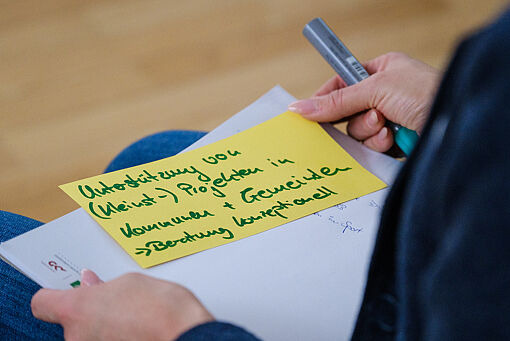 Unterstützung von
(Kleinst-) Projekten in
Kommunen + Gemeinden
=> Beratung konzeptionell